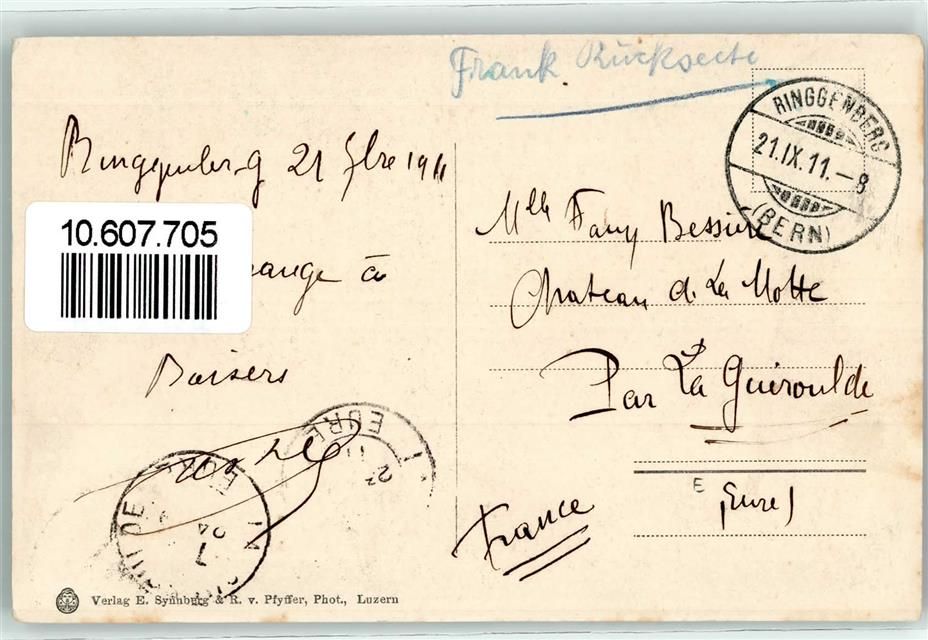 Frank Rückseite
RINGGENBERG
21.IX.11.-8
(BERN)
Ringgenberg 21 7bre 1911
10.607.705
à
Baisers
Mlle Fany Bessière
Chateau de La Motte
Par La Guéroulde
E
(Eure)
France
EURE
EURE
Verlag E. Synnberg & R. v. Pfyffer, Phot., Luzern